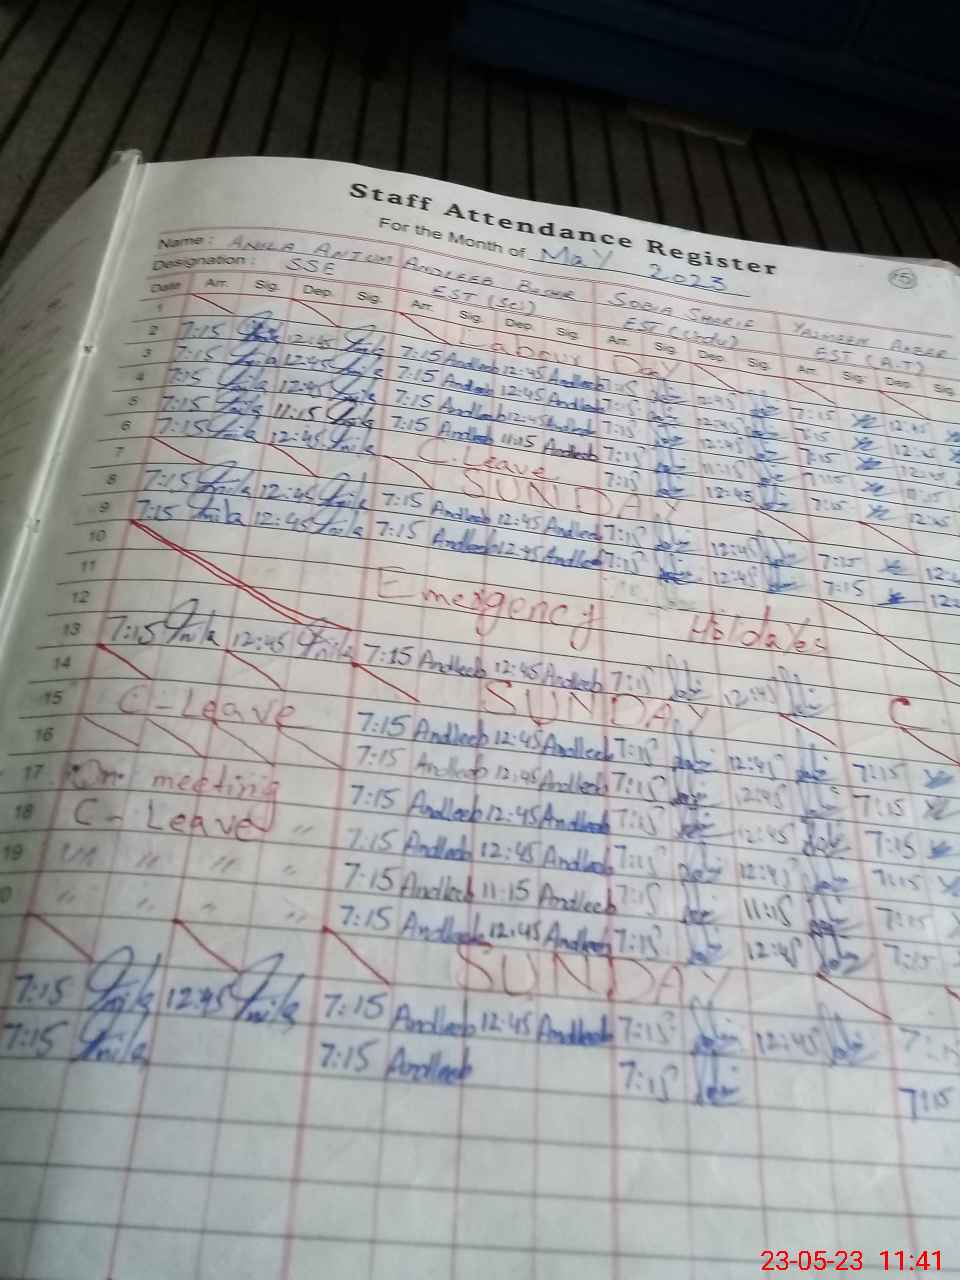 Staff Attendance Register
For the Month of May 2023
15
Name: ANILA ANJUM ANDLEEB BASHIR SOBIA SHARIF YASMEEN
Designation: SSE EST (Sci) EST (Urdu) EST (A.T)
Date Arr. Sig. Dep. Sig. Arr. Sig. Dep. Sig. Arr. Sig. Dep. Sig. Arr. Sig. Dep. Sig.
1 Labour Day
2 7:15 Anila 12:45 Anila 7:15 Andleeb 12:45 Andleeb 7:15 12:45 7:15 12:45
3 7:15 Anila 12:45 Anila 7:15 Andleeb 12:45 Andleeb 7:15 12:45 7:15 12:45
4 7:15 Anila 12:45 Anila 7:15 Andleeb 12:45 Andleeb 7:15 12:45 7:15 12:45
5 7:15 Anila 11:15 Anila 7:15 Andleeb 11:15 Andleeb 7:15 11:15 7:15 11:15
6 7:15 Anila 12:45 Anila C. Leave 7:15 12:45 7:15 12:45
7 SUNDAY
8 7:15 Anila 12:45 Anila 7:15 Andleeb 12:45 Andleeb 7:15 12:45 7:15
9 7:15 Anila 12:45 Anila 7:15 Andleeb 12:45 Andleeb 7:15 12:45 7:15
10
11 Emergency Holidayes
12
13 7:15 Anila 12:45 Anila 7:15 Andleeb 12:45 Andleeb 7:15 12:45 C
14 SUNDAY
15 C-Leave 7:15 Andleeb 12:45 Andleeb 7:15 12:45 7:15
16 7:15 Andleeb 12:45 Andleeb 7:15 12:45 7:15
17 On meeting 7:15 Andleeb 12:45 Andleeb 7:15 12:45 7:15
18 C-Leave " 7:15 Andleeb 12:45 Andleeb 7:15 12:45 7:15
19 " " " " 7:15 Andleeb 11:15 Andleeb 7:15 11:15 7:15
0 " " " " 7:15 Andleeb 12:45 Andleeb 7:15 12:45 7:15
SUNDAY
7:15 Anila 12:45 Anila 7:15 Andleeb 12:45 Andleeb 7:15 12:45
7:15 Anila 7:15 Andleeb 7:15 7:15
23-05-23 11:41